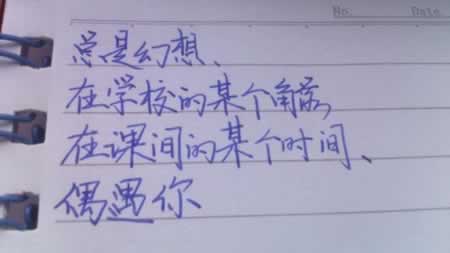 No.    Date
总是幻想、
在学校的某个角落,
在课间的某个时间、
偶遇你